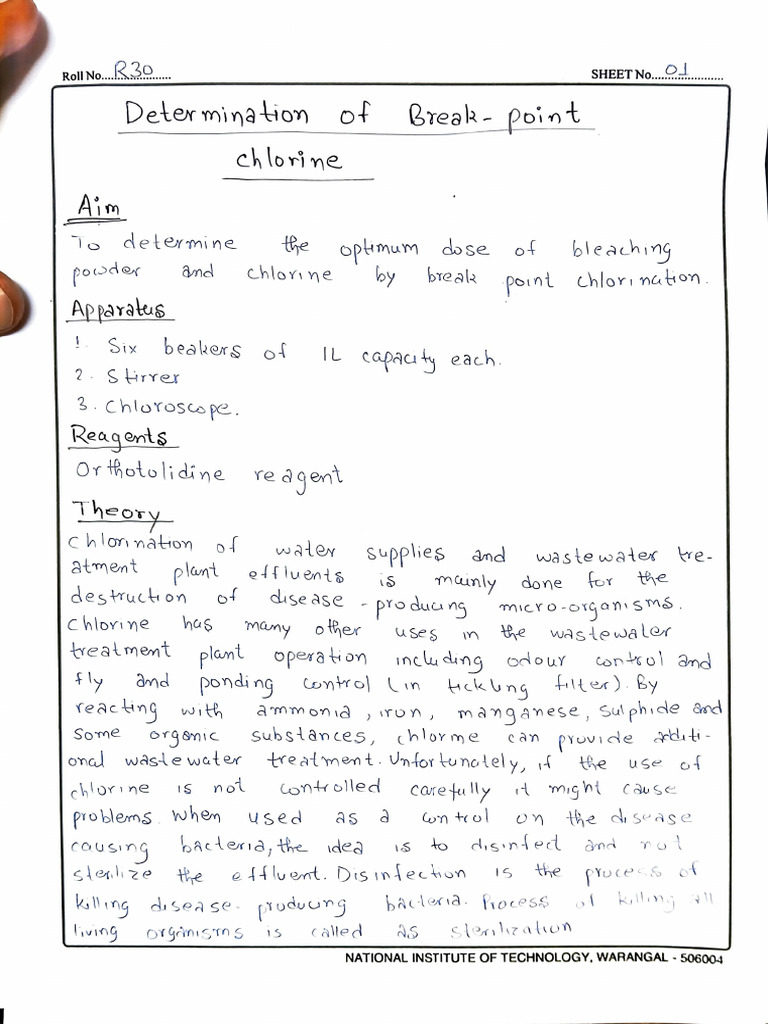 Roll No....R30........... SHEET No.....01............
Determination of Break-point
chlorine
Aim
To determine the optimum dose of bleaching
powder and chlorine by break point chlorination.
Apparatus
1. Six beakers of 1L capacity each.
2. Stirrer
3. Chloroscope.
Reagents
Orthotolidine reagent
Theory
Chlorination of water supplies and wastewater tre-
atment plant effluents is mainly done for the
destruction of disease-producing micro-organisms.
Chlorine has many other uses in the wastewater
treatment plant operation including odour control and
fly and ponding control (in tickling filter). By
reacting with ammonia, iron, manganese, sulphide and
some organic substances, chlorine can provide additi-
onal wastewater treatment. Unfortunately, if the use of
chlorine is not controlled carefully it might cause
problems. When used as a control on the disease
causing bacteria, the idea is to disinfect and not
sterilize the effluent. Disinfection is the process of
killing disease-producing bacteria. Process of killing all
living orgmisms is called as sterilization
NATIONAL INSTITUTE OF TECHNOLOGY, WARANGAL - 506004